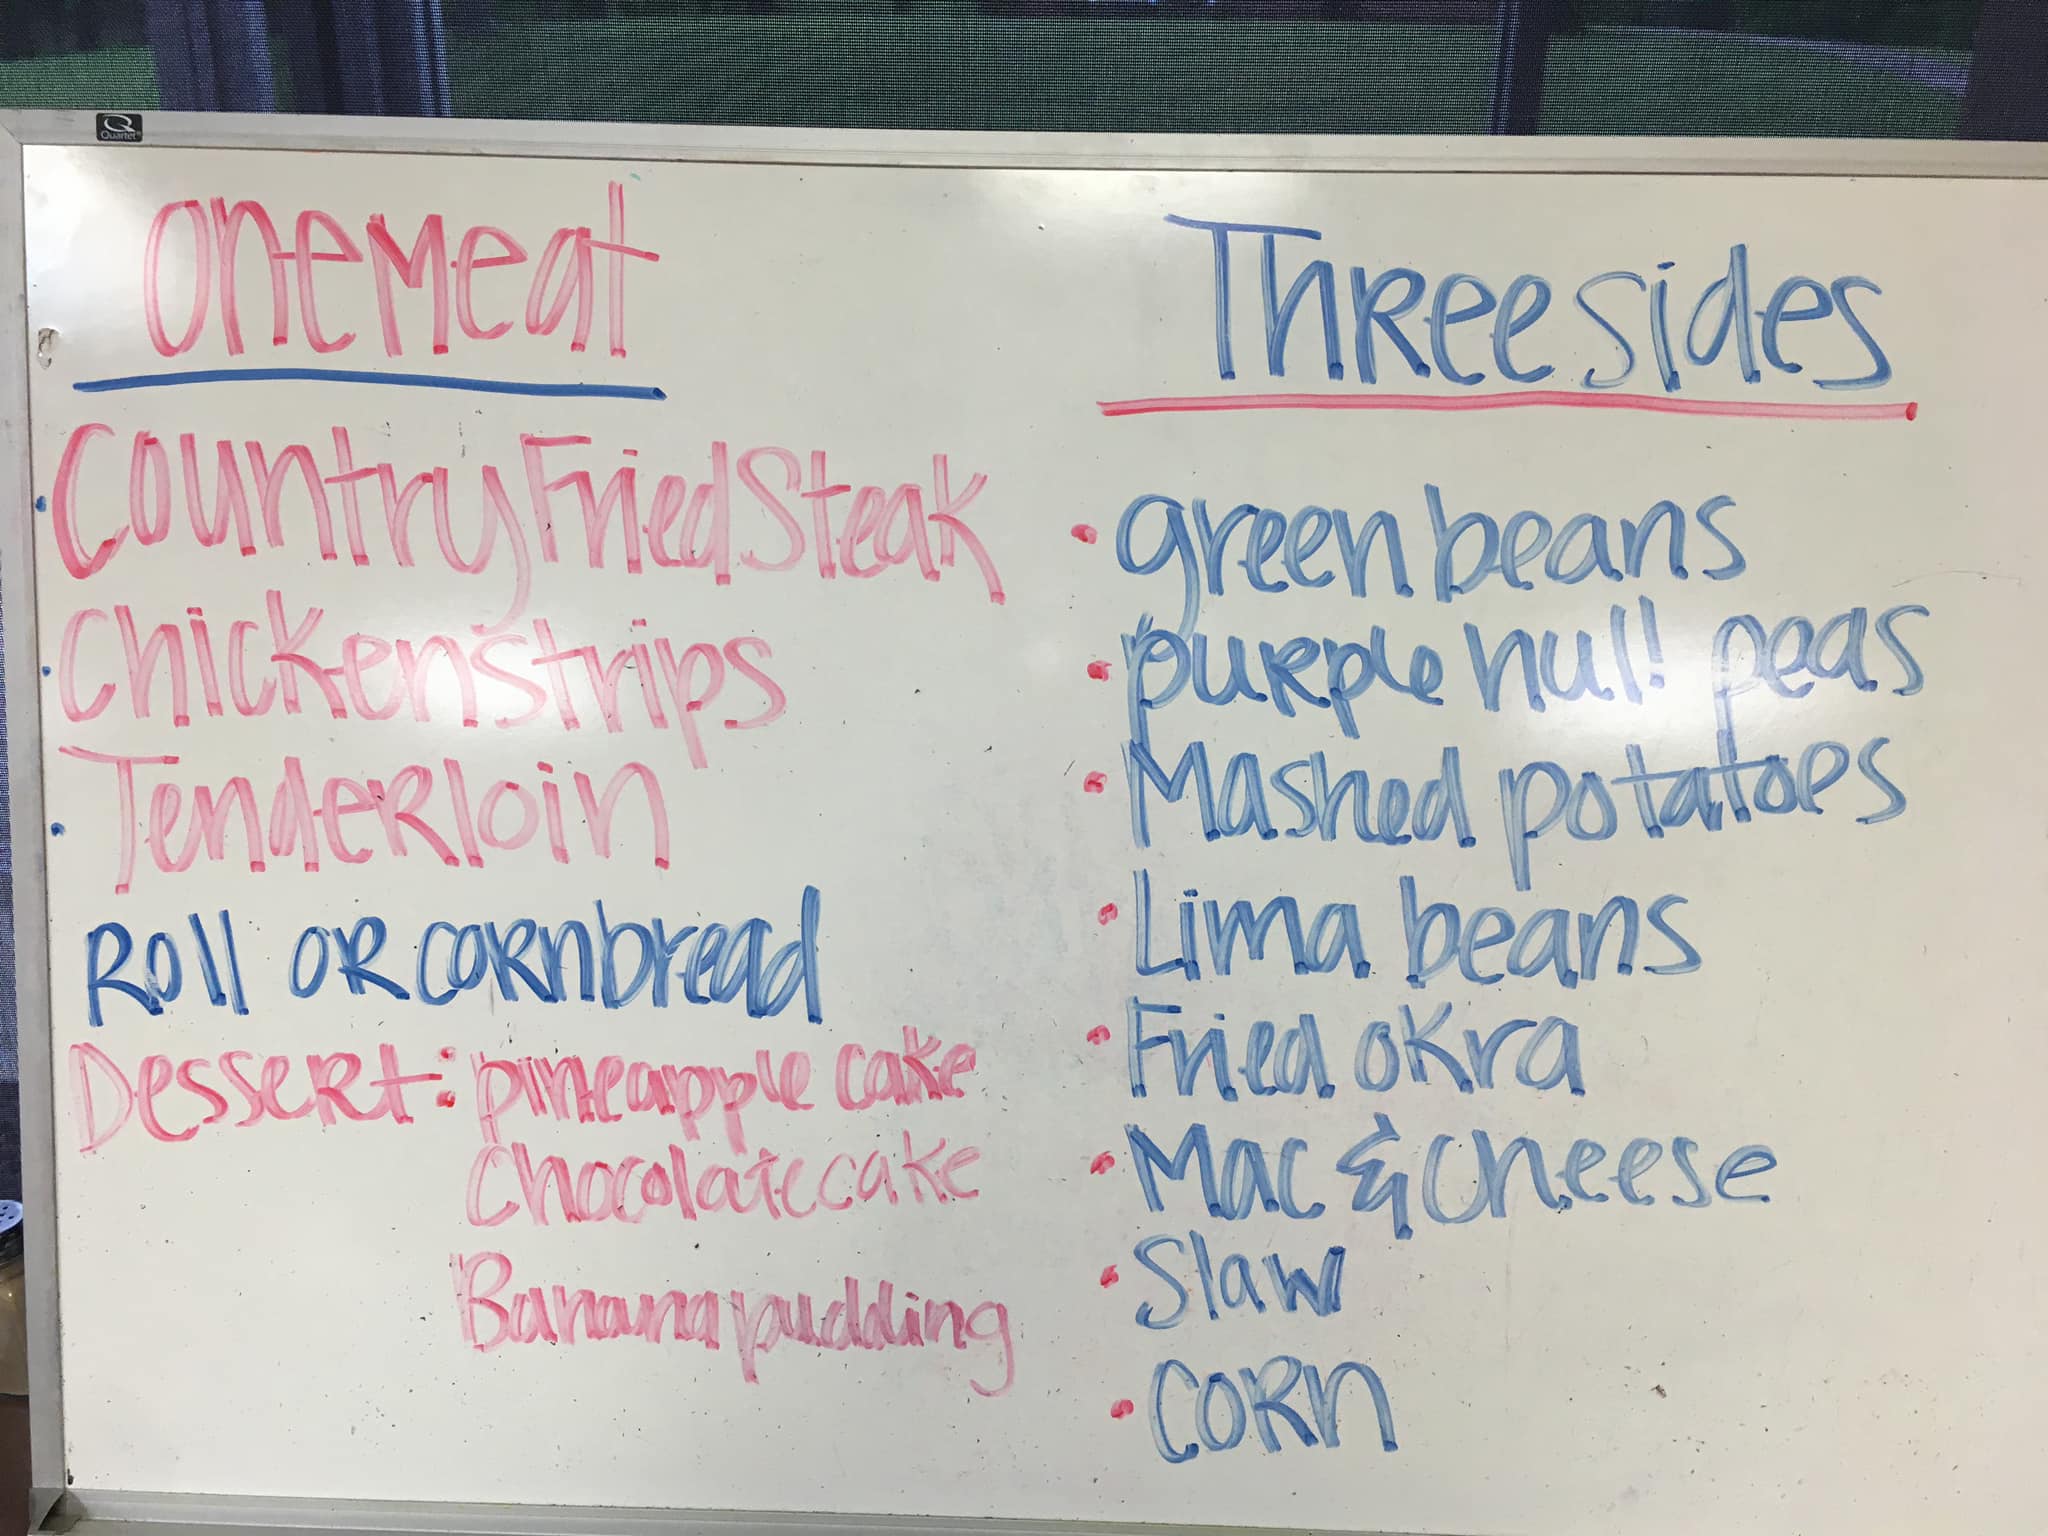 Quartet
One Meat
• Country Fried Steak
• Chicken strips
• Tenderloin
Roll or cornbread
Dessert: pineapple cake
Chocolate cake
Banana pudding
Three sides
• green beans
• purple hull peas
• Mashed potatoes
• Lima beans
• Fried okra
• Mac & cheese
• Slaw
• corn